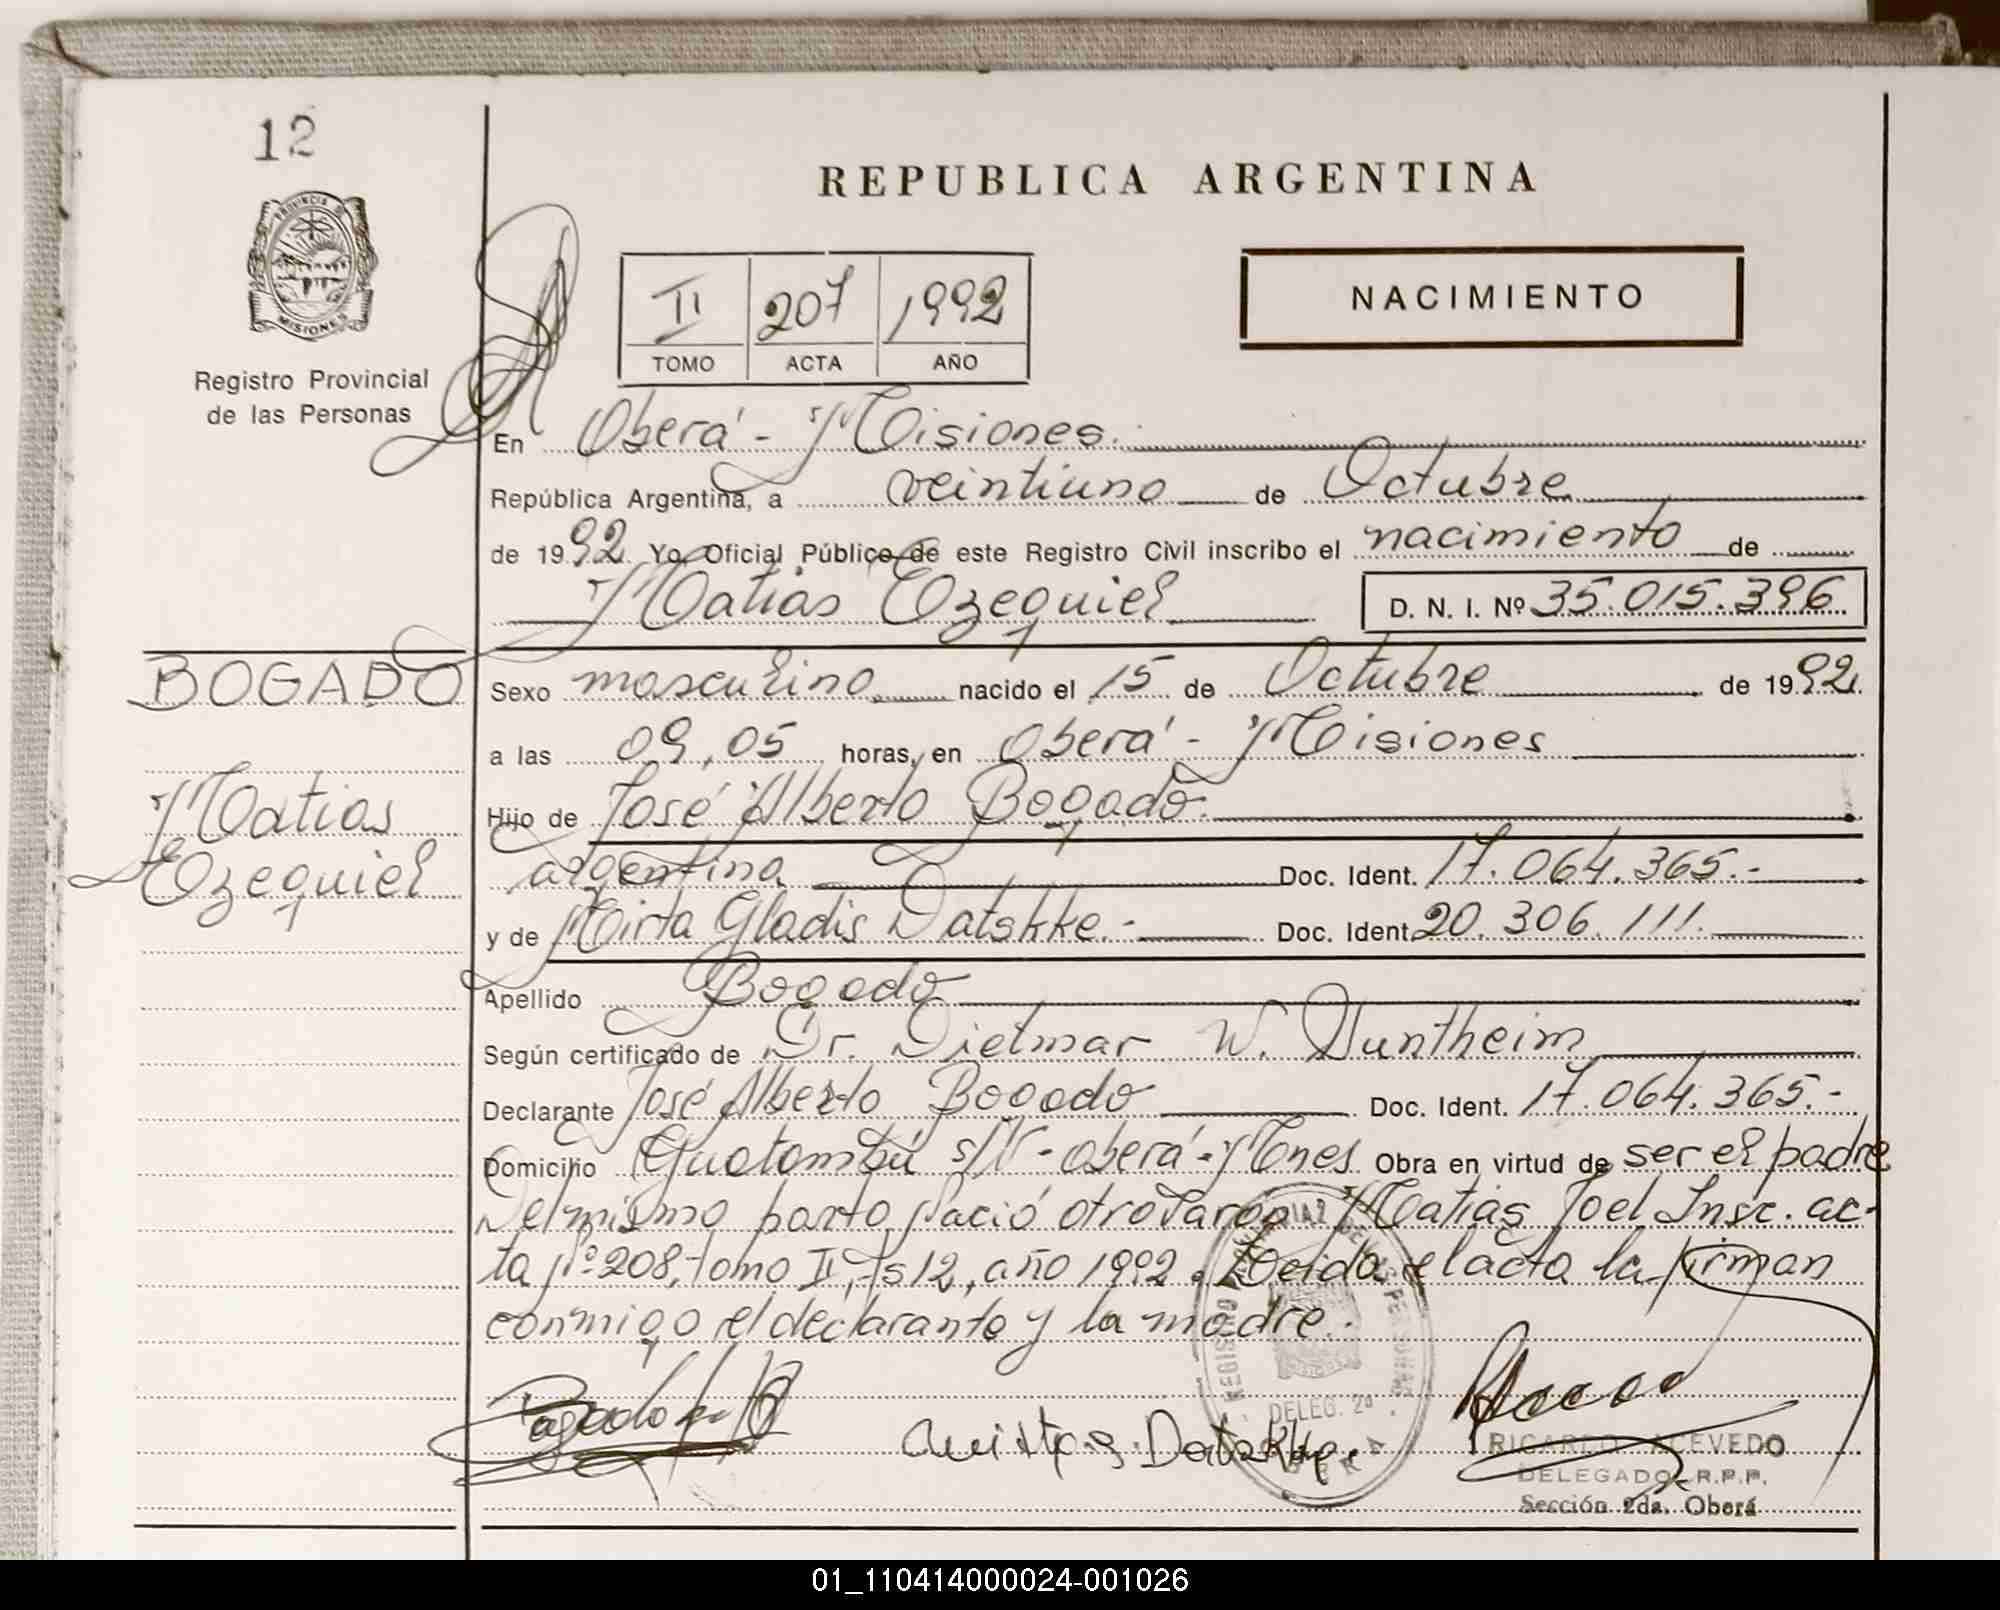 12
REPUBLICA ARGENTINA
PROVINCIA DE
MISIONES
Registro Provincial
de las Personas
II 207 1992
TOMO ACTA AÑO
NACIMIENTO
En Oberá - Misiones.
República Argentina, a veintiuno de Octubre
de 1992. Yo Oficial Público de este Registro Civil inscribo el nacimiento de
Matias Ezequiel D. N. I. Nº 35.015.396
BOGADO
Matias
Ezequiel
Sexo masculino nacido el 15 de Octubre de 1992.
a las 09,05 horas, en Oberá - Misiones
Hijo de José Alberto Bogado.
argentina Doc. Ident. 17.064.365.-
y de Mirta Gladis Datskke.- Doc. Ident. 20.306.111.
Apellido Bogado
Según certificado de Dr. Dietmar W. Duntheim
Declarante José Alberto Bogado Doc. Ident. 17.064.365.-
Domicilio Guatambú s/Nº - Oberá - Mnes. Obra en virtud de ser el padre
Del mismo parto Nació otro Varón Matias Joel Insc. ac-
ta Nº 208, tomo II, Fs 12, año 1992. Leida el acta la firman
conmigo el declarante y la madre.
DELEG. 2ª
RICARDO ACEVEDO
DELEGADO R.P.P.
Sección 2da. Oberá
01_110414000024-001026